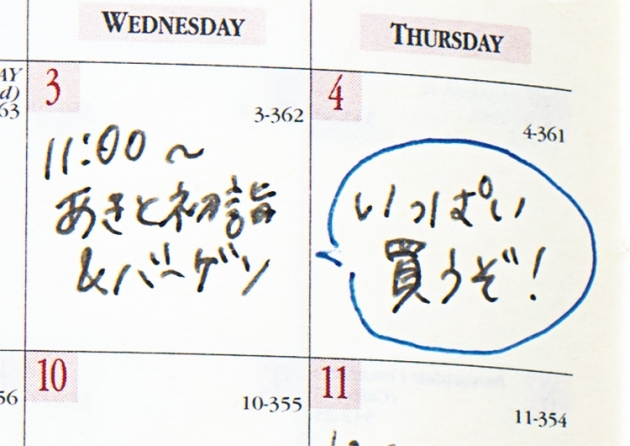 WEDNESDAY
THURSDAY
AY
d)
63
3
3-362
11:00 ~
あきと初詣
&バーゲン
4
4-361
いっぱい
買うぞ!
56
10
10-355
11
11-354